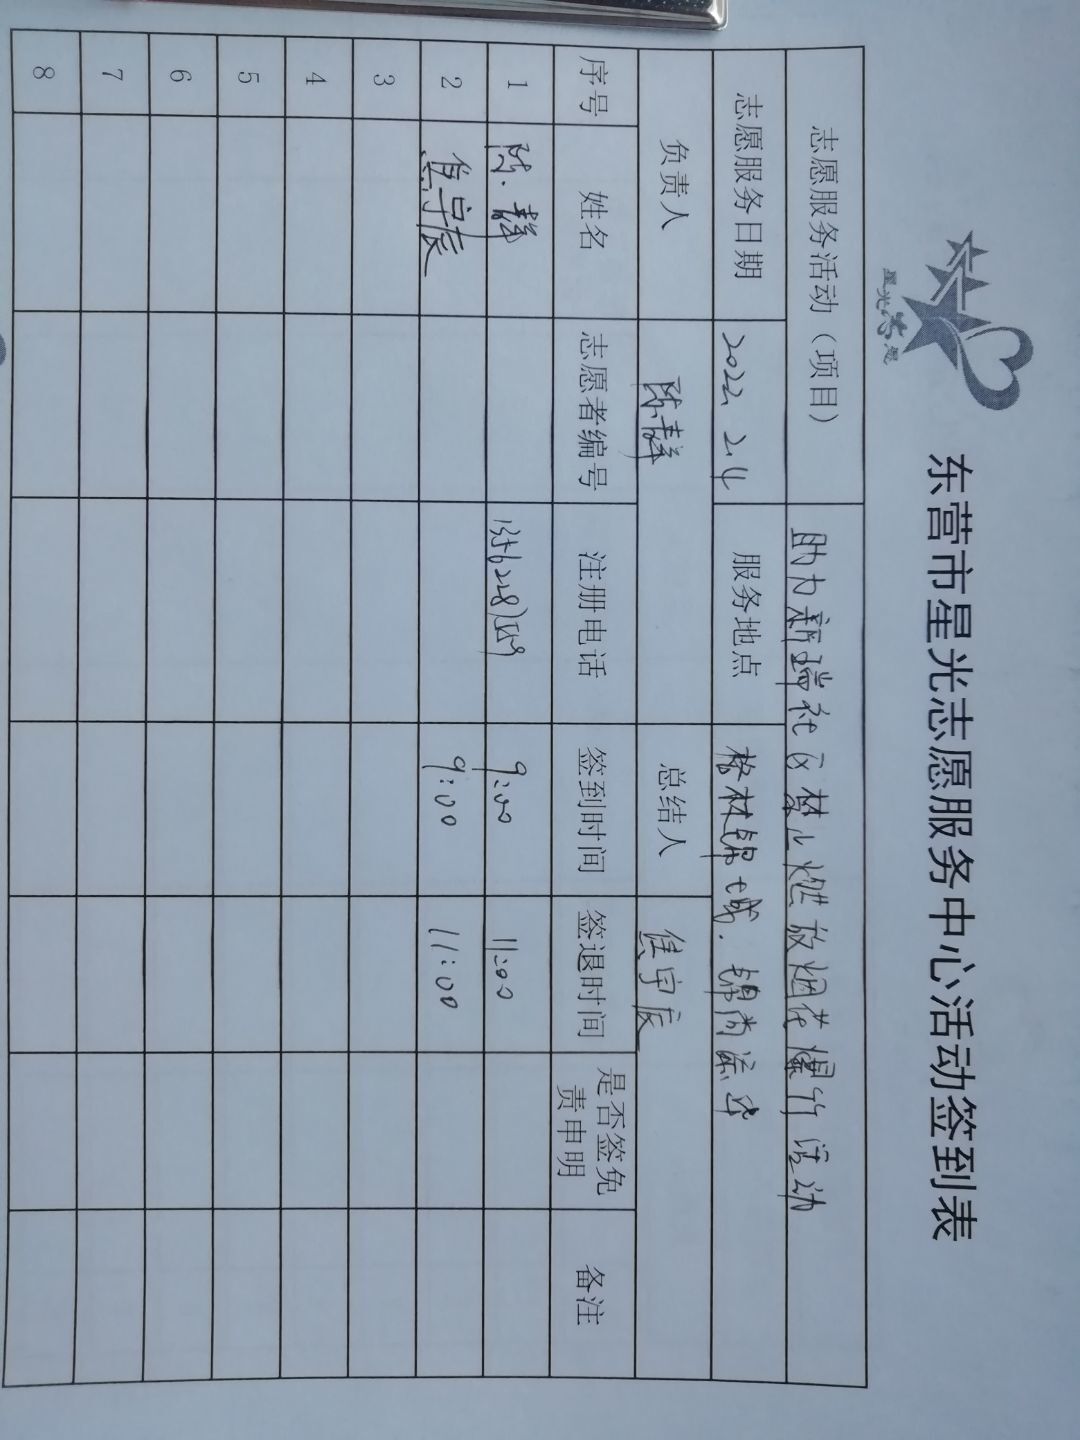 星光志愿
东营市星光志愿服务中心活动签到表
志愿服务活动（项目） 助力新瑞社区禁止燃放烟花爆竹活动
志愿服务日期 2022. 2.4 服务地点 榕林锦城. 锦尚流华
负责人 陈静 总结人 焦宇辰
序号 姓名 志愿者编号 注册电话 签到时间 签退时间 是否签免责申明 备注
1 陈静 9:00 11:00
2 焦宇辰 9:00 11:00
3
4
5
6
7
8